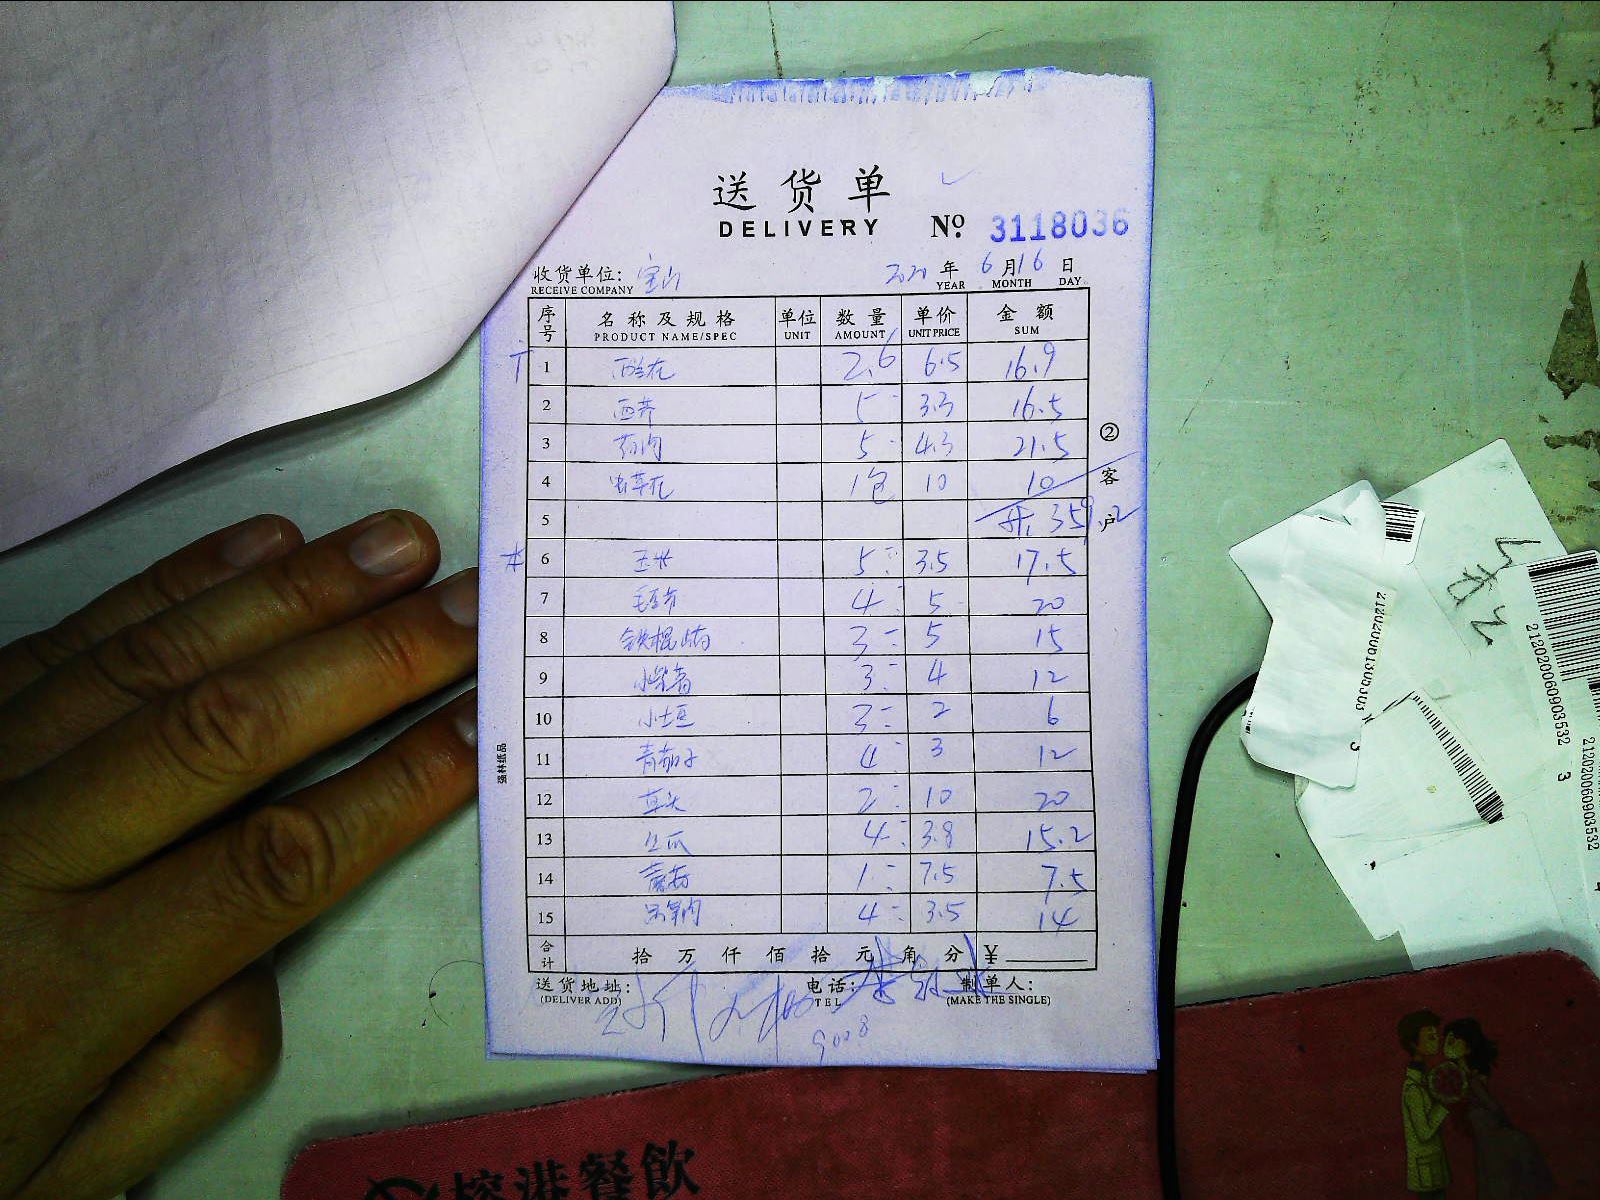 送货单
DELIVERY № 3118036
收货单位: 宝山 2020 年 6 月 16 日
RECEIVE COMPANY YEAR MONTH DAY
序号 名称及规格 单位 数量 单价 金额
PRODUCT NAME/SPEC UNIT AMOUNT UNIT PRICE SUM
1 西兰花 2.6 6.5 16.9
2 西芹 5 3.3 16.5
3 5 4.3 21.5
4 虫草花 1包 10 10
5 359.2
6 玉米 5 3.5 17.5
7 4 5 20
8 铁棍山药 3 5 15
9 3 4 12
10 小土豆 3 2 6
11 青茄子 4 3 12
12 2 10 20
13 4 3.8 15.2
14 蘑菇 1 7.5 7.5
15 4 3.5 14
合计 拾 万 仟 佰 拾 元 角 分 ¥
送货地址: 电话: 制单人:
(DELIVER ADD) TEL (MAKE THE SINGLE)
9008
② 客户
强林纸品
212020060903532 3
212020060903532
榕港餐飲